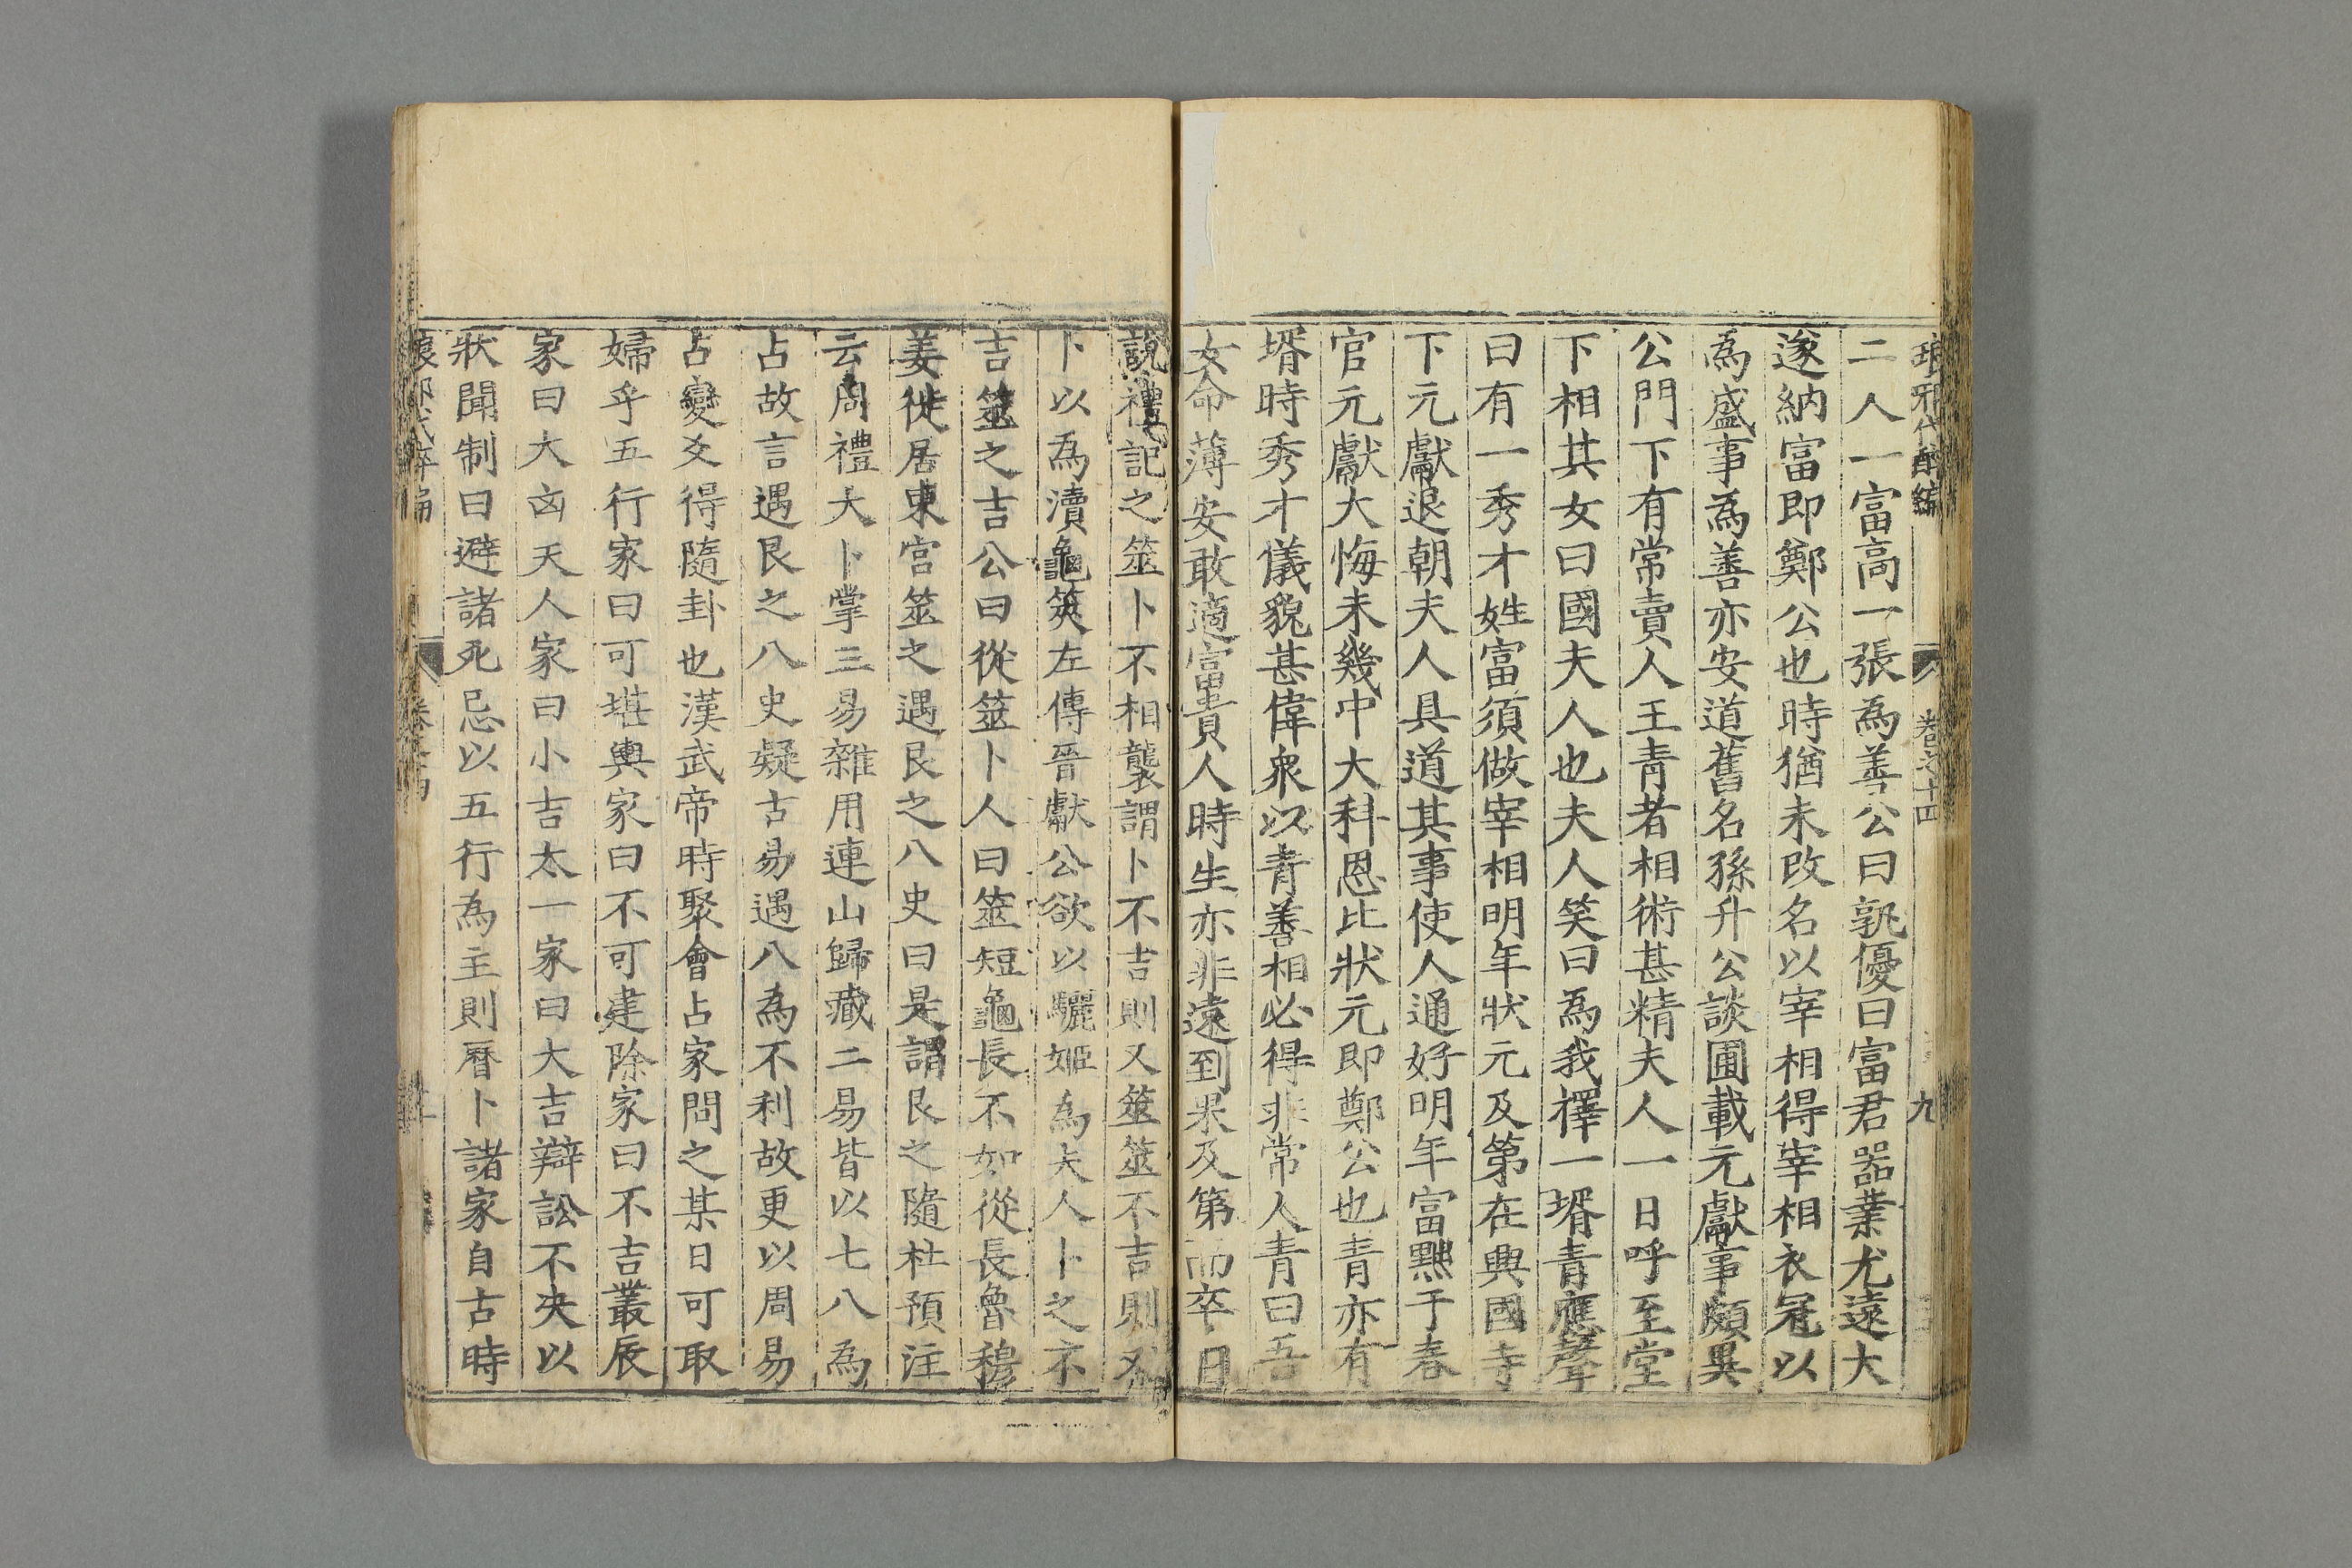 琅邪代醉編 卷之十四 九
二人一富高一張為善公曰孰優曰富君器業尤遠大
遂納富即鄭公也時猶未改名以宰相得宰相衣冠以
為盛事為善亦安道舊名孫升公談圃載元獻事頗異
公門下有常賣人王青者相術甚精夫人一日呼至堂
下相其女曰國夫人也夫人笑曰為我擇一壻青應聲
曰有一秀才姓富須做宰相明年狀元及第在興國寺
下元獻退朝夫人具道其事使人通好明年富黜于春
官元獻大悔未幾中大科恩比狀元即鄭公也青亦有
壻時秀才儀貌甚偉衆以青善相必得非常人青曰吾
女命薄安敢適富貴人時生亦非遠到果及第而卒曰
說禮記之筮卜不相襲謂卜不吉則又筮筮不吉則
卜以為瀆龜筴左傳晉獻公欲以驪姬為夫人卜之不
吉筮之吉公曰從筮卜人曰筮短龜長不如從長魯穆
姜徙居東宮筮之遇艮之八史曰是謂艮之隨杜預注
云周禮大卜掌三易雜用連山歸藏二易皆以七八為
占故言遇艮之八史疑古易遇八為不利故更以周易
占變爻得隨卦也漢武帝時聚會占家問之某日可取
婦乎五行家曰可堪輿家曰不可建除家曰不吉叢辰
家曰大凶天人家曰小吉太一家曰大吉辯訟不决以
狀聞制曰避諸死忌以五行為主則曆卜諸家自古時